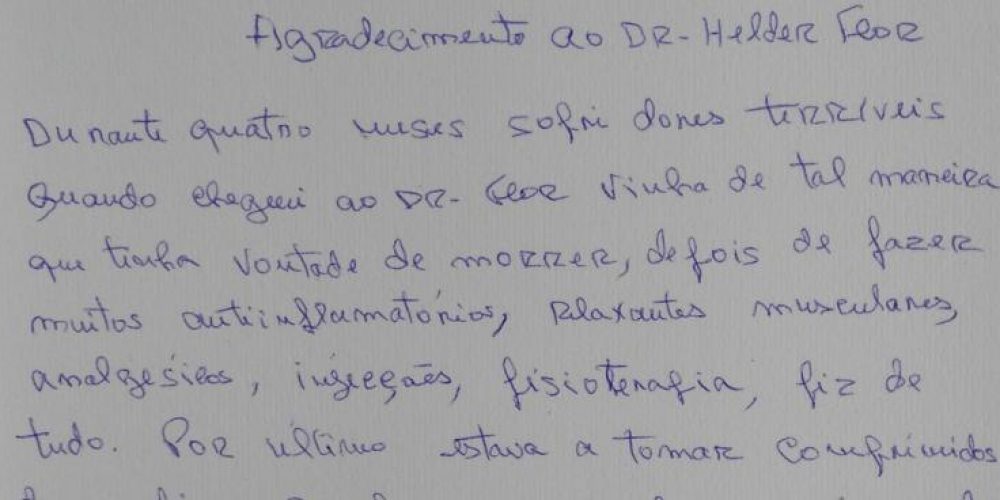 Agradecimento ao DR- Helder Flor
Durante quatro meses sofri dores terríveis
Quando cheguei ao DR- Flor vinha de tal maneira
que tinha vontade de morrer, depois de fazer
muitos antiinflamatórios, relaxantes musculares,
analgésicos, injecções, fisioterapia, fiz de
tudo. Por último estava a tomar comprimidos